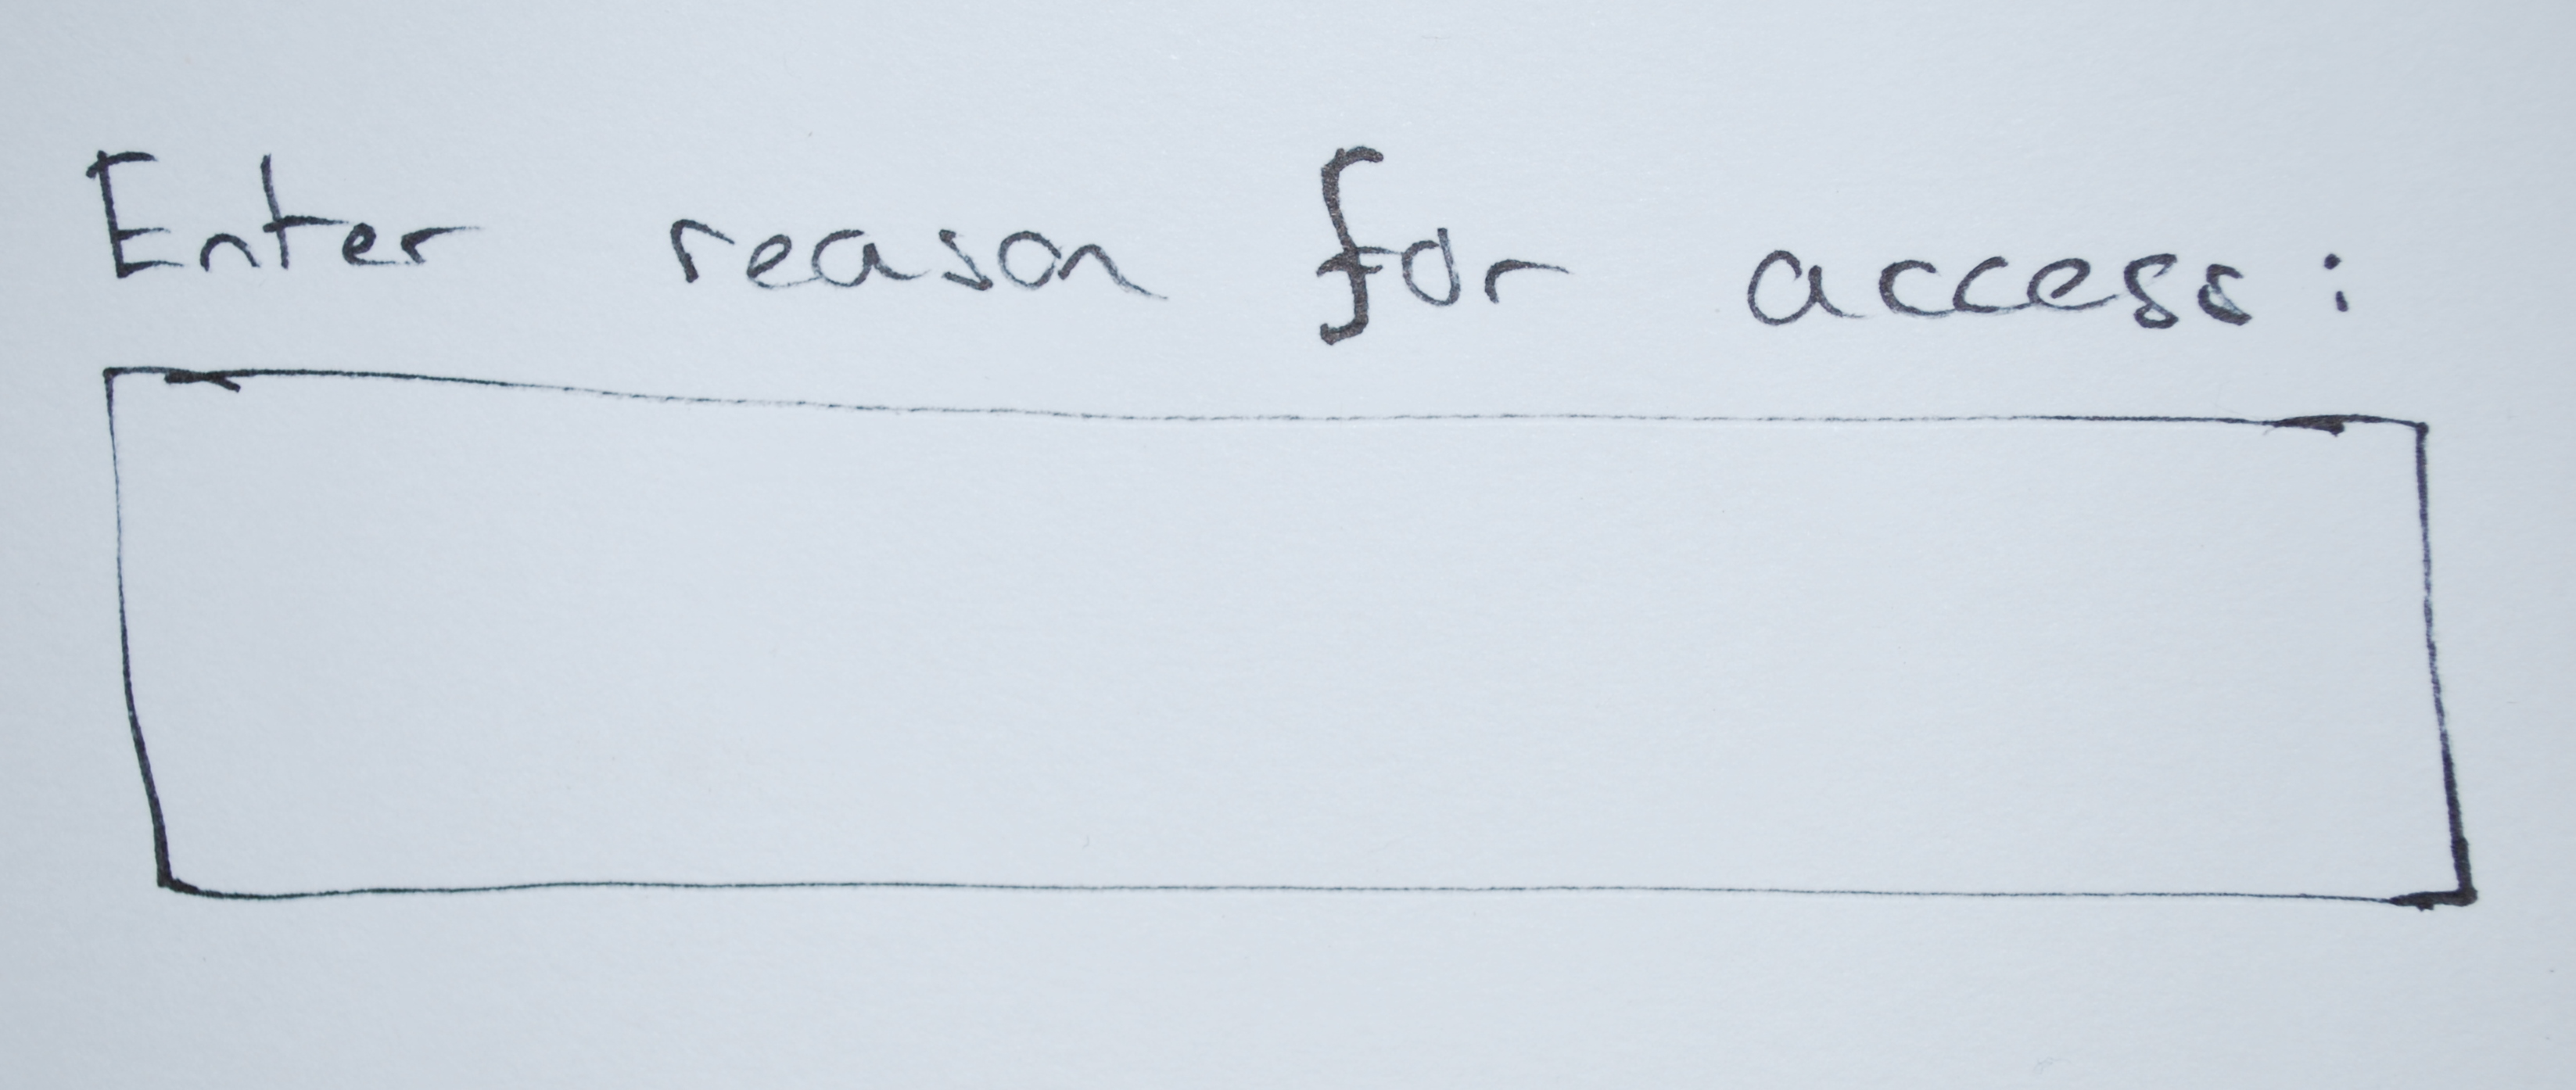 Enter reason for access: